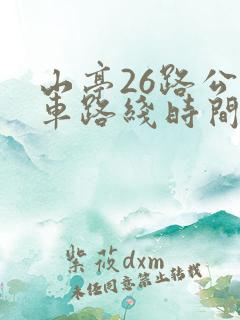 山亭26路公
車路綫时間
紫筱dxm
未经同意禁止转载